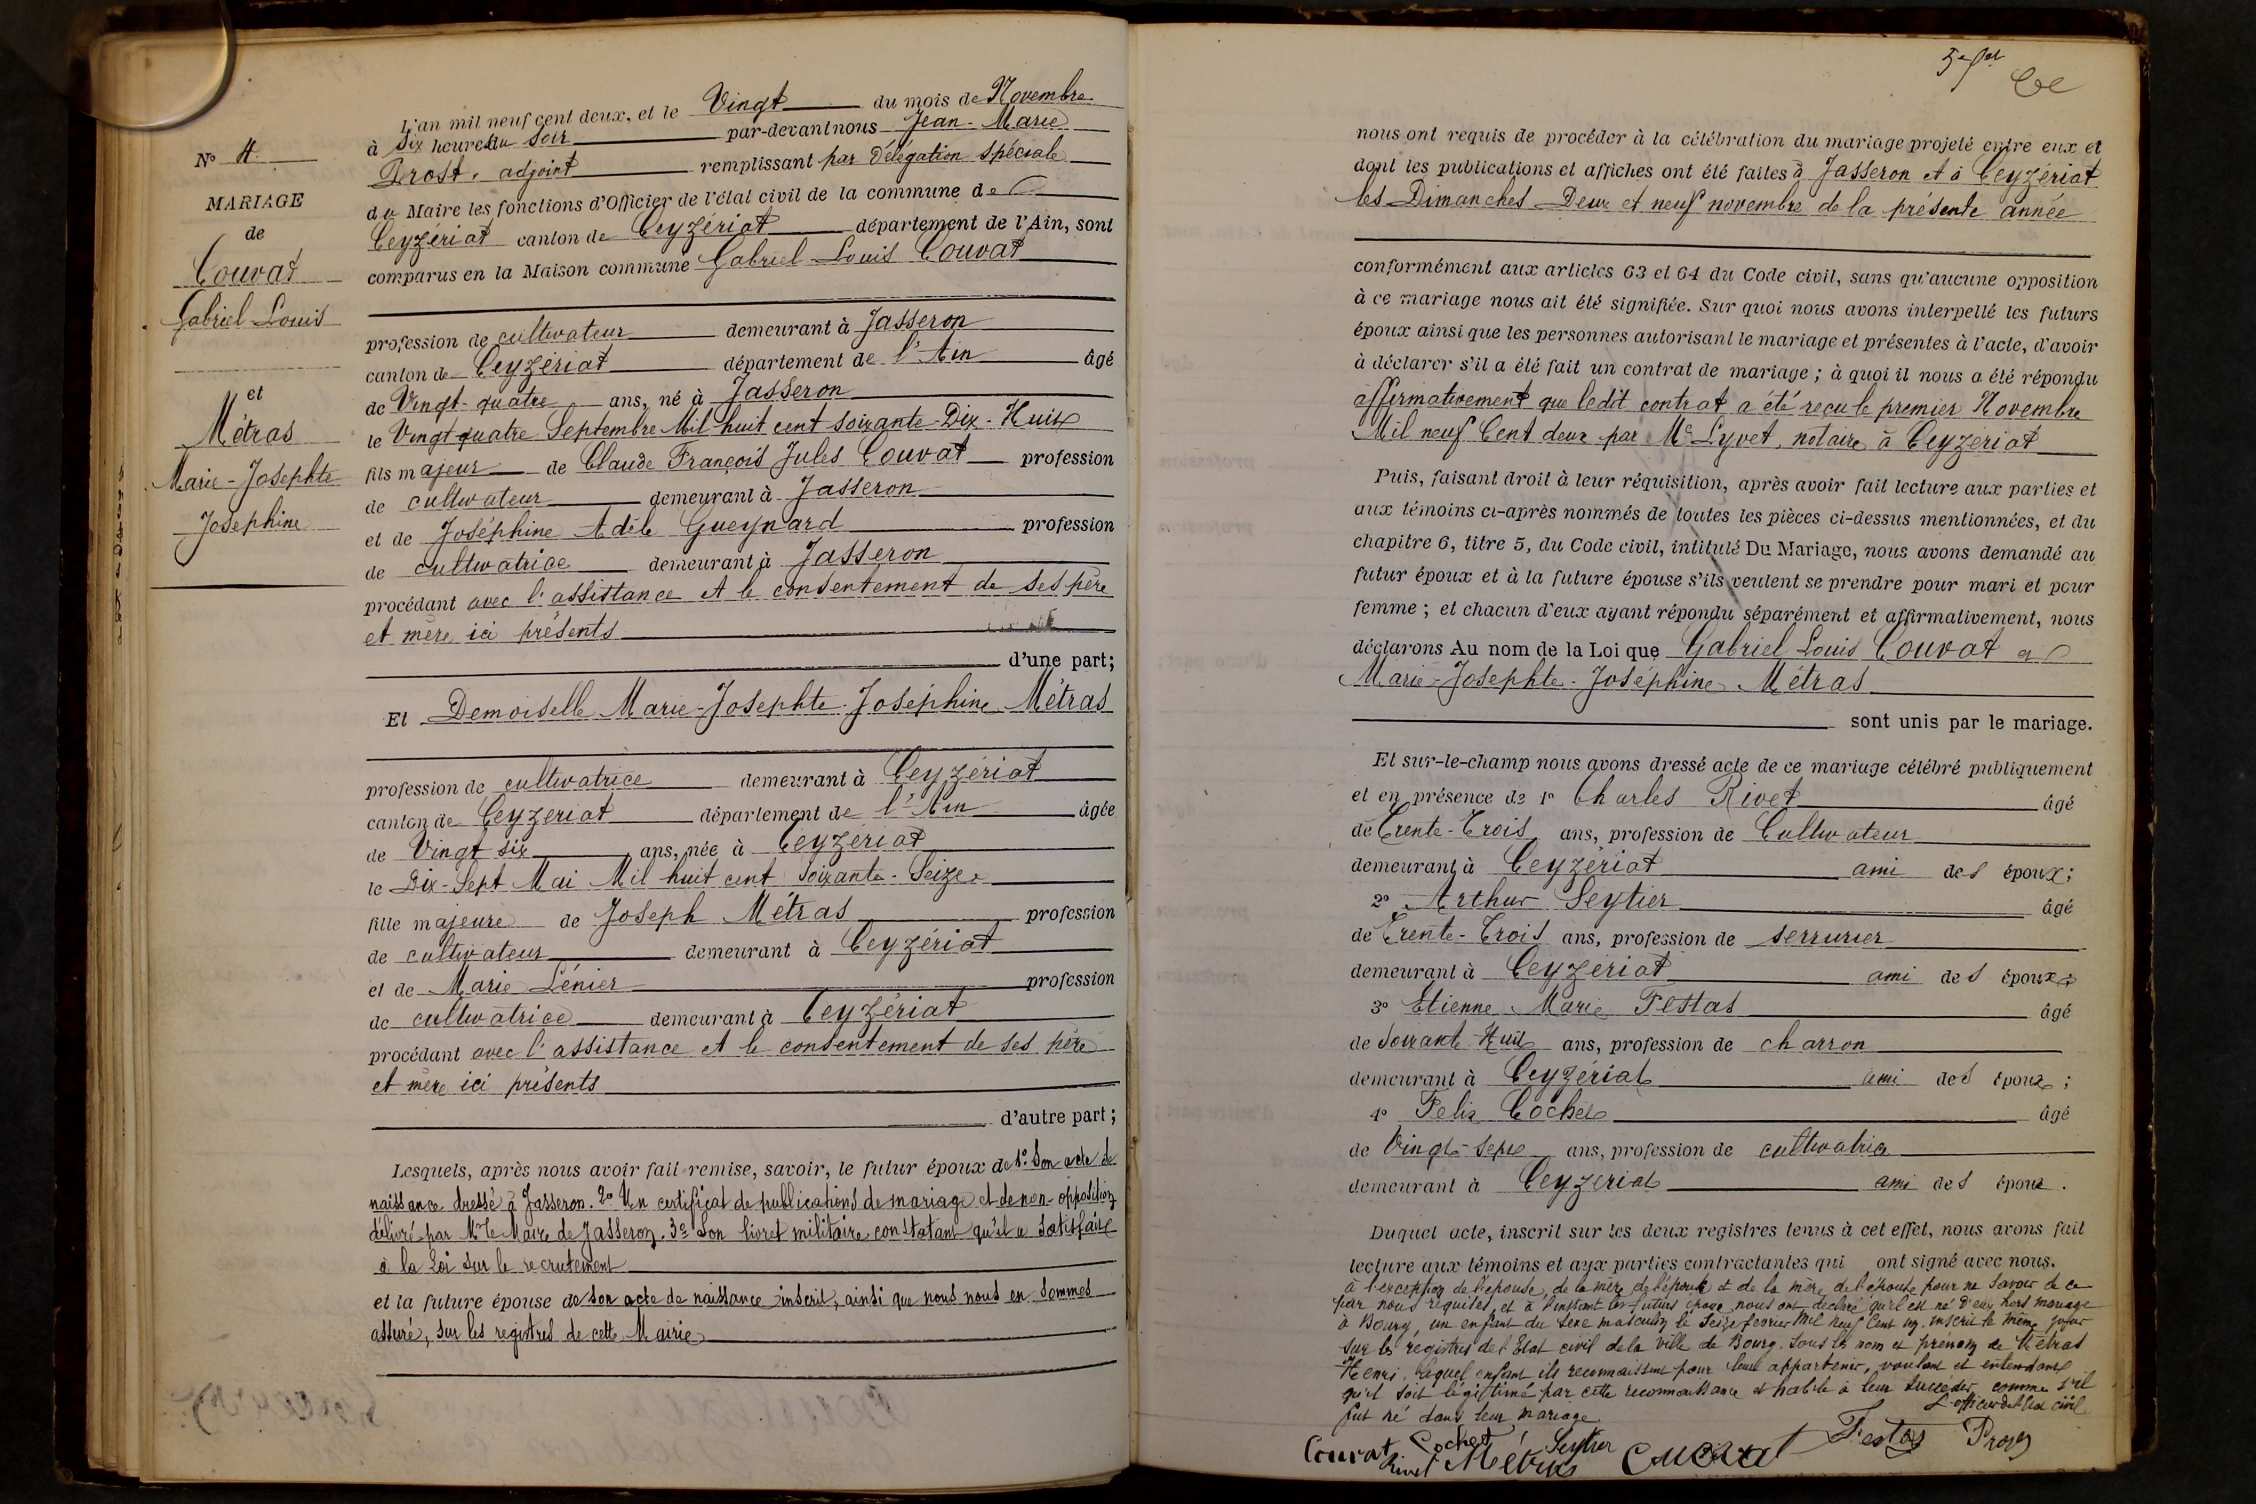 L'an mil neuf cent deux, et le Vingt du mois de Novembre
à Six heures du Soir par-devant nous Jean-Marie
Prost, adjoint remplissant par délégation spéciale
du Maire les fonctions d'Officier de l'état civil de la commune de
Ceyzériat canton de Ceyzériat département de l'Ain, sont
comparus en la Maison commune Gabriel Louis Couvat
N° 4
MARIAGE
de
Couvat
Gabriel Louis
et
Métras
Marie-Josephte
Joséphine
profession de cultivateur demeurant à Jasseron
canton de Ceyzériat département de l'Ain âgé
de Vingt-quatre ans, né à Jasseron
le Vingt quatre Septembre Mil huit cent soixante-Dix-Huit
fils majeur de Claude François Jules Couvat profession
de cultivateur demeurant à Jasseron
et de Joséphine Adèle Gueynard profession
de cultivatrice demeurant à Jasseron
procédant avec l'assistance et le consentement de ses père
et mère ici présents
d'une part;
Et Demoiselle Marie-Josephte-Joséphine Métras
profession de cultivatrice demeurant à Ceyzériat
canton de Ceyzériat département de l'Ain âgée
de Vingt six ans, née à Ceyzériat
le Dix-Sept Mai Mil huit cent soixante-Seize
fille majeure de Joseph Métras profession
de cultivateur demeurant à Ceyzériat
et de Marie Lénier profession
de cultivatrice demeurant à Ceyzériat
procédant avec l'assistance et le consentement de ses père
et mère ici présents
d'autre part;
Lesquels, après nous avoir fait remise, savoir, le futur époux de 1° Son acte de
naissance dressé à Jasseron. 2° Un certificat de publications de mariage et de non-opposition
délivré par Mr le Maire de Jasseron. 3° Son livret militaire constatant qu'il a satisfait
à la Loi sur le recrutement
et la future épouse de son acte de naissance inscrit, ainsi que nous nous en sommes
assuré, sur les registres de cette Mairie
nous ont requis de procéder à la célébration du mariage projeté entre eux et
dont les publications et affiches ont été faites à Jasseron et à Ceyzériat
les Dimanches Deux et neuf novembre de la présente année
conformément aux articles 63 et 64 du Code civil, sans qu'aucune opposition
à ce mariage nous ait été signifiée. Sur quoi nous avons interpellé les futurs
époux ainsi que les personnes autorisant le mariage et présentes à l'acte, d'avoir
à déclarer s'il a été fait un contrat de mariage ; à quoi il nous a été répondu
affirmativement que ledit contrat a été reçu le premier Novembre
Mil neuf Cent deux par Me Lyvet, notaire à Ceyzériat
Puis, faisant droit à leur réquisition, après avoir fait lecture aux parties et
aux témoins ci-après nommés de toutes les pièces ci-dessus mentionnées, et du
chapitre 6, titre 5, du Code civil, intitulé Du Mariage, nous avons demandé au
futur époux et à la future épouse s'ils veulent se prendre pour mari et pour
femme ; et chacun d'eux ayant répondu séparément et affirmativement, nous
déclarons Au nom de la Loi que Gabriel Louis Couvat et
Marie-Josephte-Joséphine Métras
sont unis par le mariage.
Et sur-le-champ nous avons dressé acte de ce mariage célébré publiquement
et en présence de 1° Charles Rivet âgé
de Trente-Trois ans, profession de Cultivateur
demeurant à Ceyzériat ami des époux;
2° Arthur Seytier âgé
de Trente-Trois ans, profession de serrurier
demeurant à Ceyzériat ami des époux;
3° Etienne Marie Festas âgé
de Soixante-Huit ans, profession de charron
demeurant à Ceyzériat ami des époux;
4° Felix Cochet âgé
de Vingt-sept ans, profession de cultivatric
demeurant à Ceyzériat ami des époux.
Duquel acte, inscrit sur les deux registres tenus à cet effet, nous avons fait
lecture aux témoins et aux parties contractantes qui ont signé avec nous.
à l'exception de l'épouse, de la mère de l'époux et de la mère de l'épouse pour ne savoir de ce
par nous requises, et à l'instant les futurs époux nous ont déclaré qu'il est né d'eux hors mariage
à Bourg, un enfant du sexe masculin le Seize fevrier Mil neuf Cent un, inscrit le même jour
sur les registres de l'Etat civil de la ville de Bourg. Sous les nom et prénom de Métras
Henri, lequel enfant ils reconnaissent pour leur appartenir, voulant et entendant
qu'il soit légitimé par cette reconnaissance et habile à leur succéder comme s'il
fut né dans leur mariage
L'officier de l'Etat civil
Couvat Cochet Seytier Festas Prost
Rivet Métras Couvat